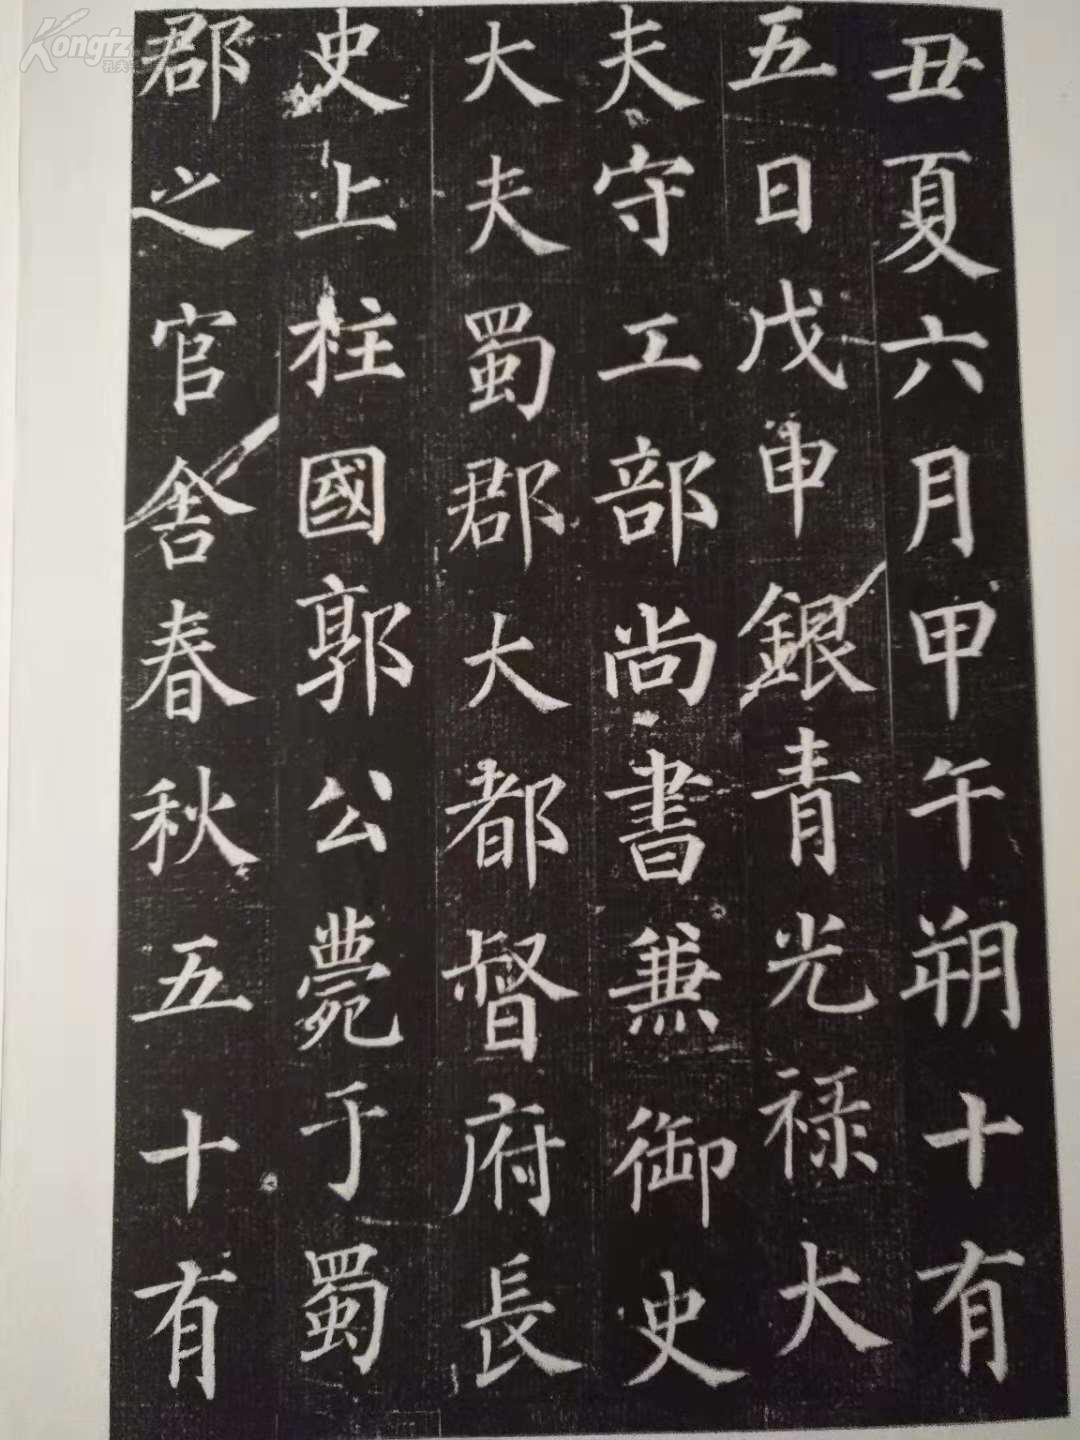 丑夏六月甲午朔十有
五日戊申銀青光祿大
夫守工部尚書兼御史
大夫蜀郡大都督府長
史上柱國郭公薨于蜀
郡之官舍春秋五十有
Kongfz